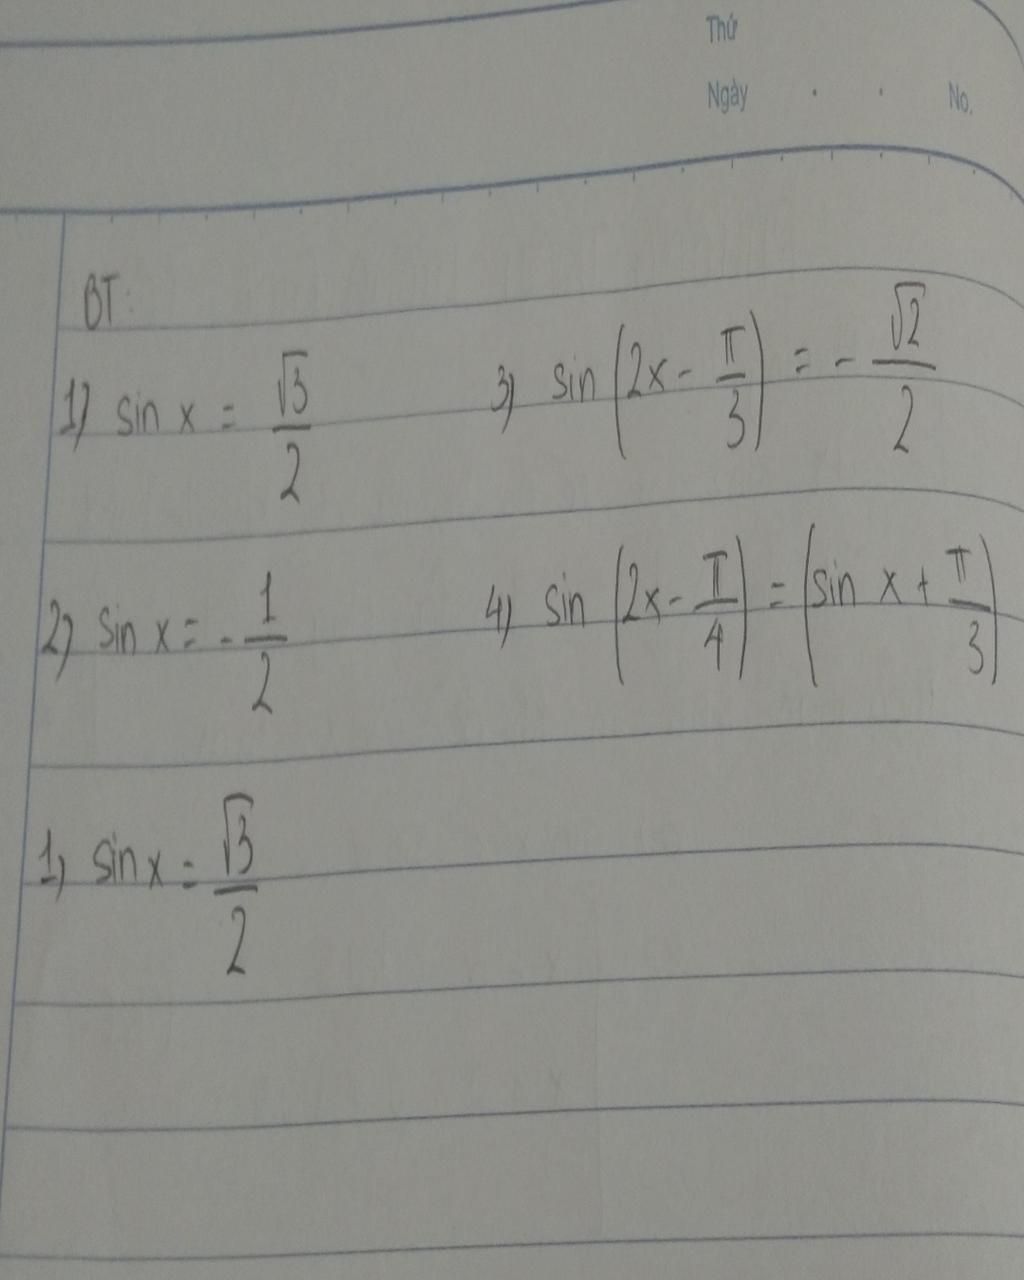 Thứ
Ngày . . No.
BT:
1) sin x = √3/2
3) sin (2x - π/3) = - √2/2
2) sin x = - 1/2
4) sin (2x - π/4) = (sin x + π/3)
1) sin x = √3/2